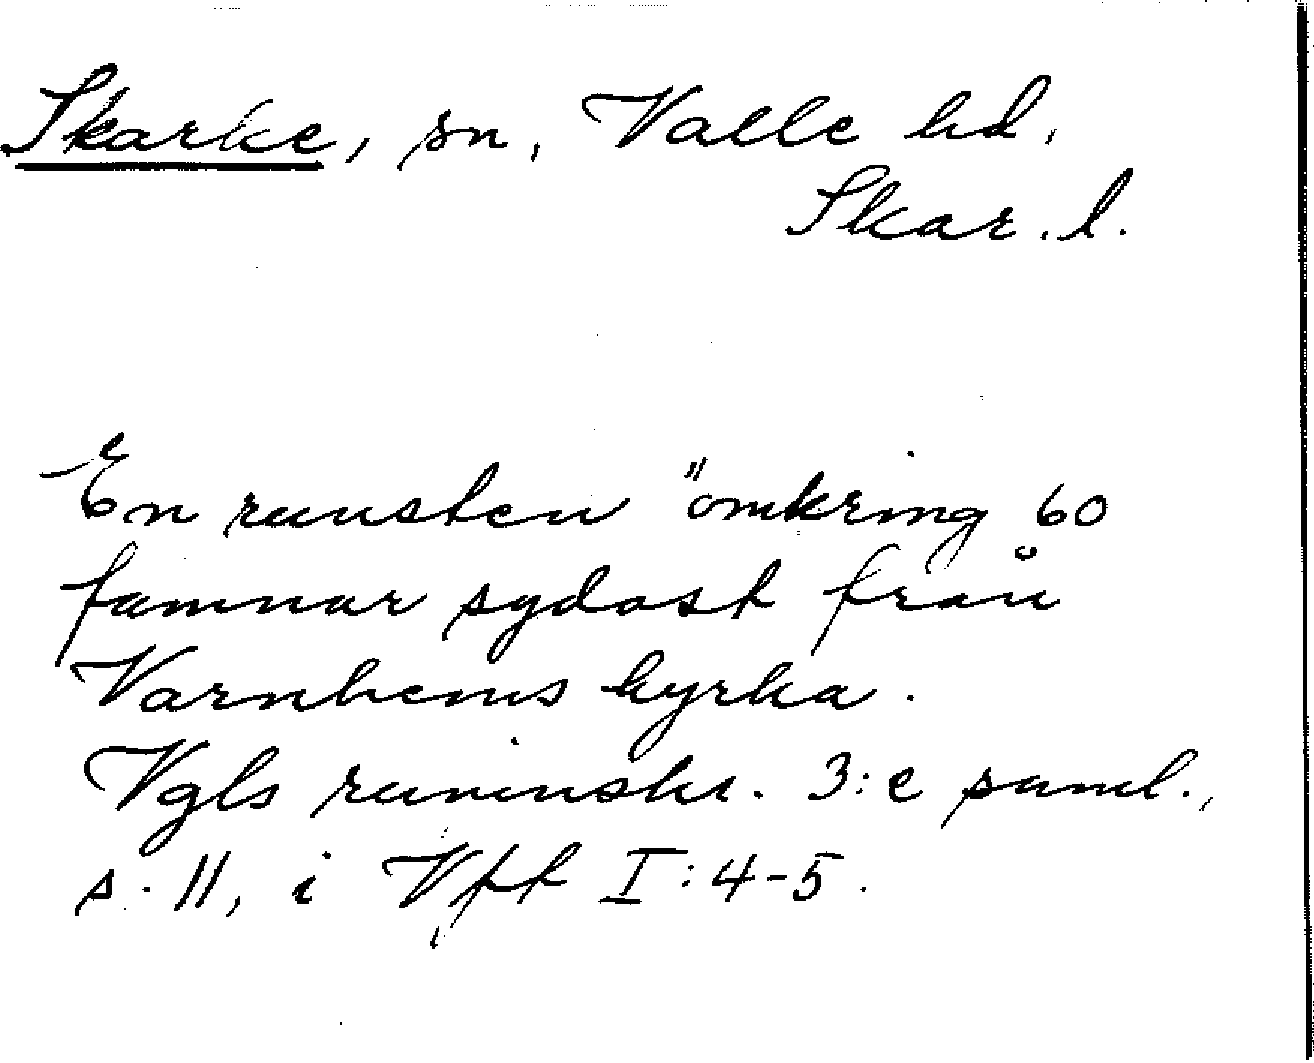 Skarke, sn, Valle hd.
Skar. l.
En runsten "omkring 60
famnar sydost från
Varnhems kyrka.
Vgls runinskr. 3:e saml.,
s. 11, i Vfft I:4-5.